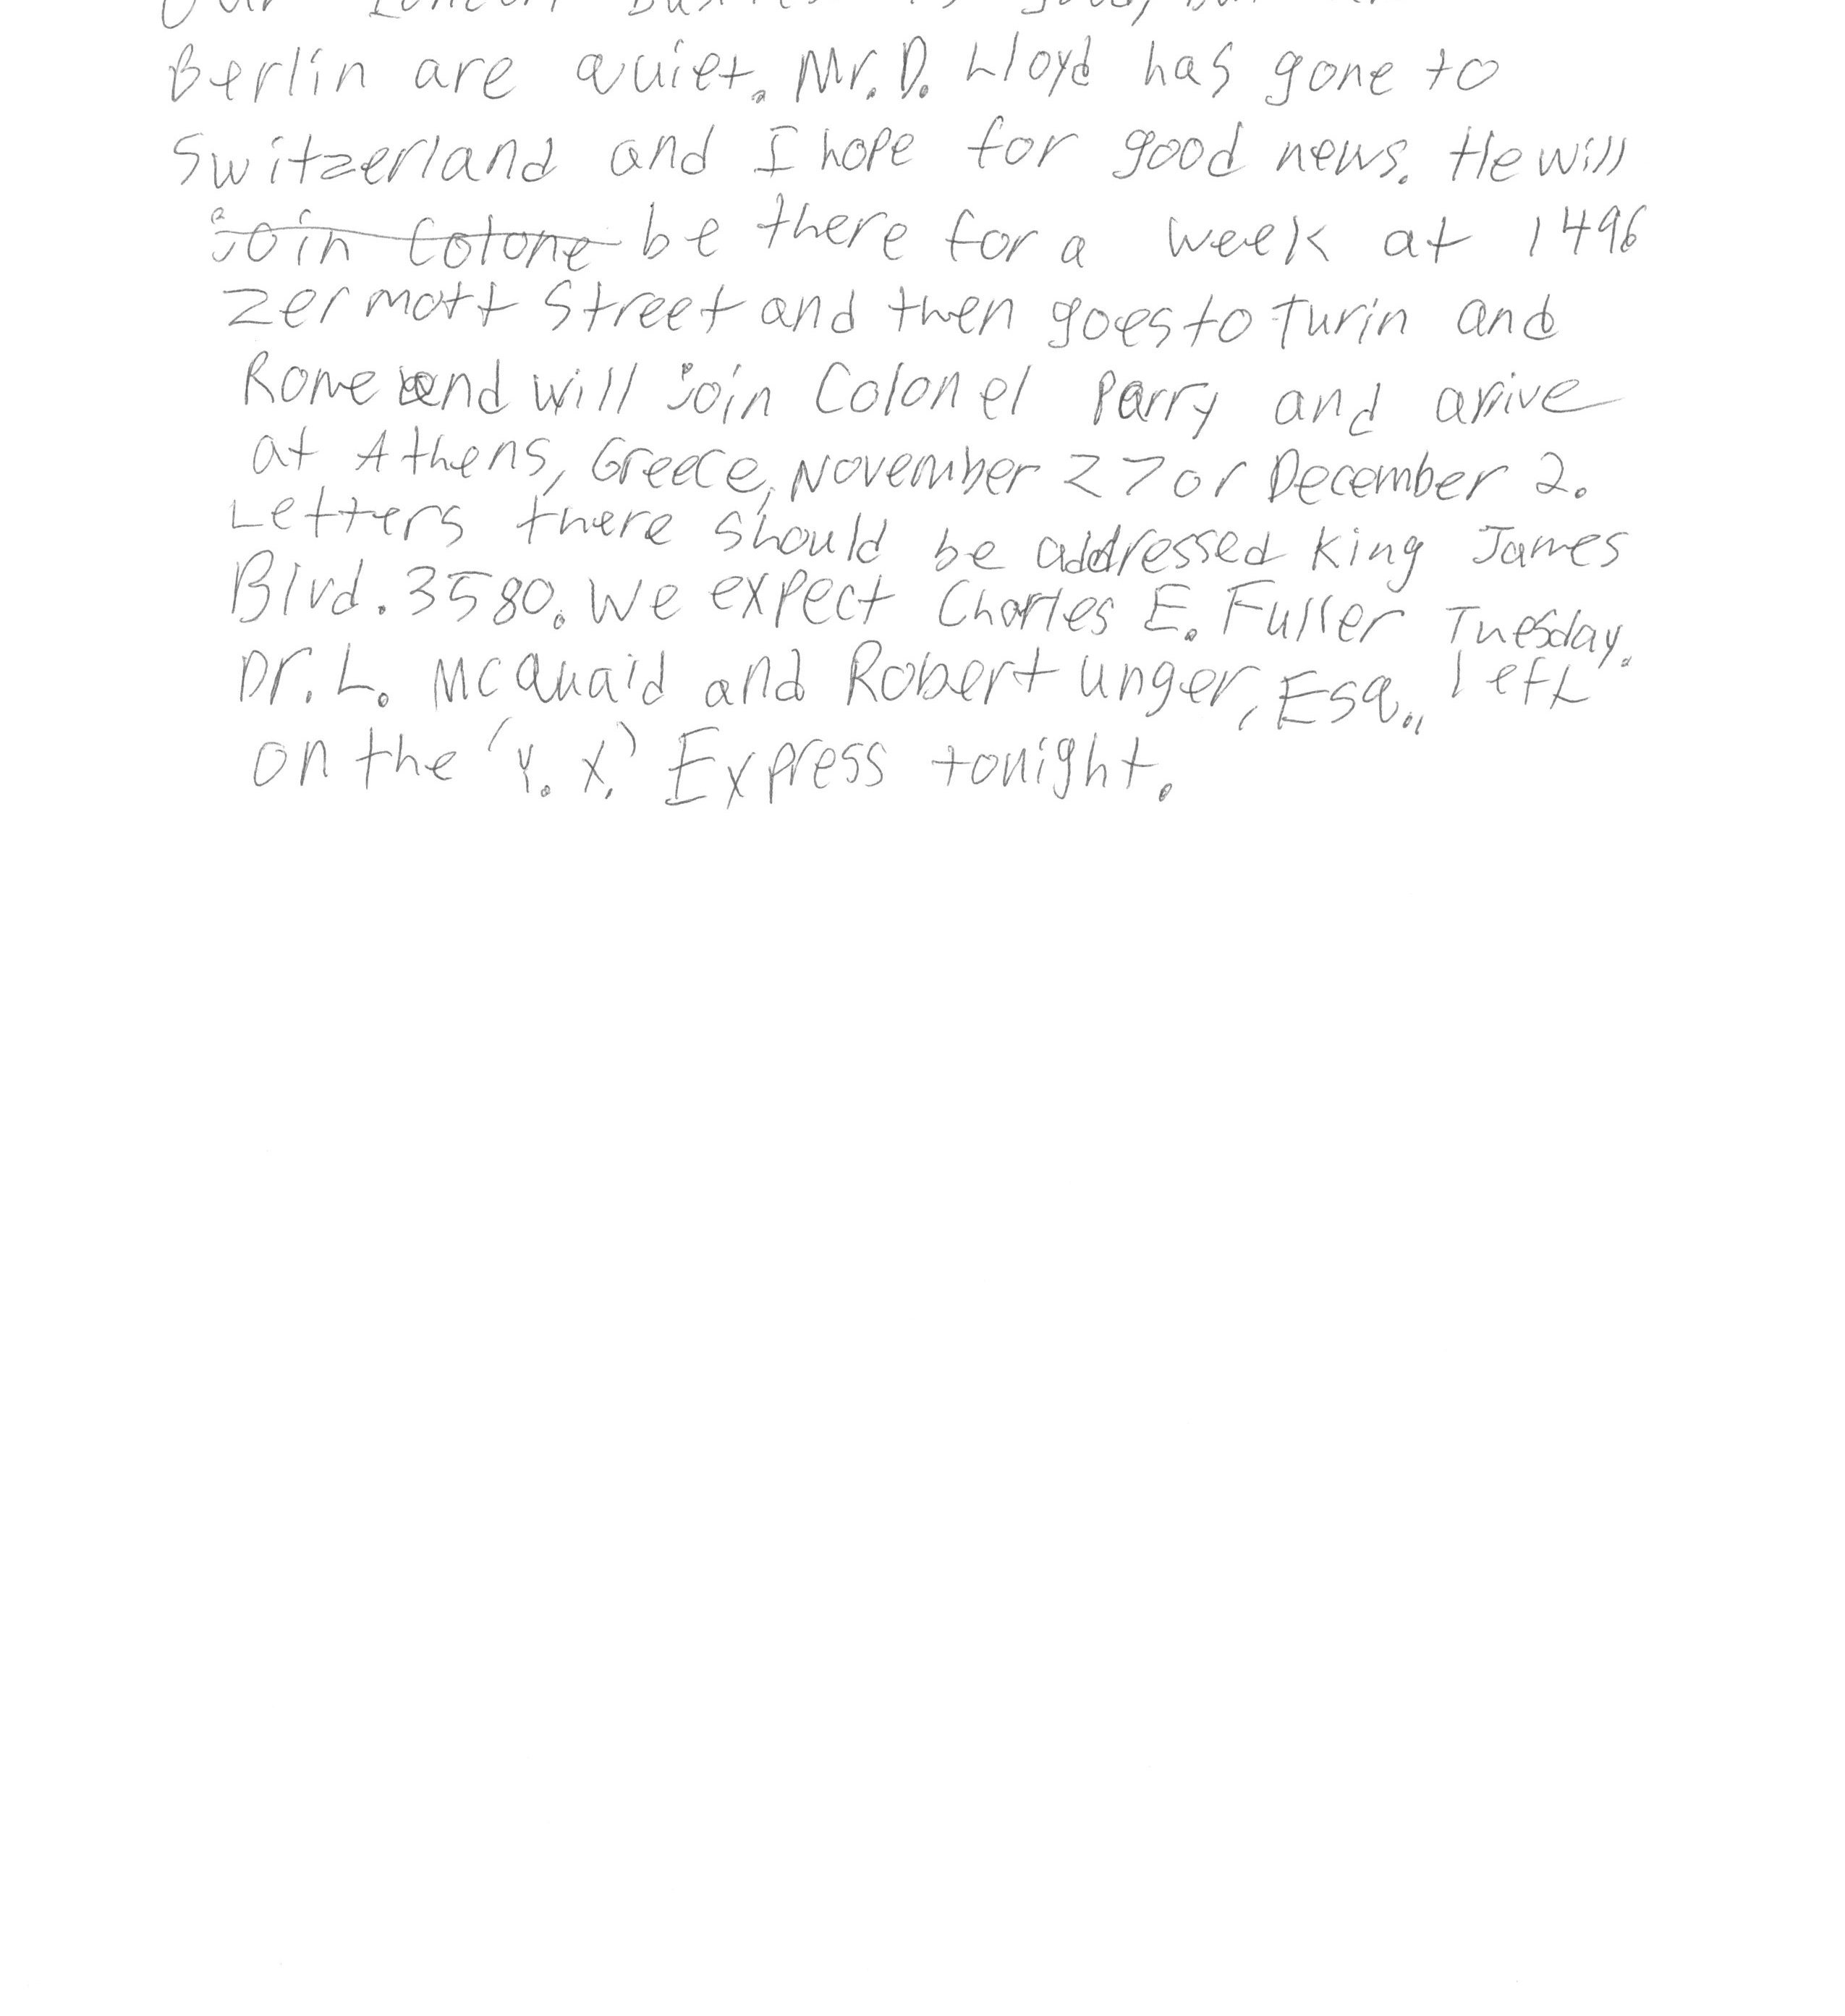 Berlin are quiet. Mr. D. Lloyd has gone to
Switzerland and I hope for good news. He will
join Colone be there for a week at 1496
Zermott Street and then goes to Turin and
Rome and will join Colonel Parry and arrive
at Athens, Greece, November 27 or December 2.
Letters there should be addressed King James
Blvd. 3580. We expect Charles E. Fuller Tuesday.
Dr. L. McQuaid and Robert Unger, Esq., left
on the 'Y. X.' Express tonight.